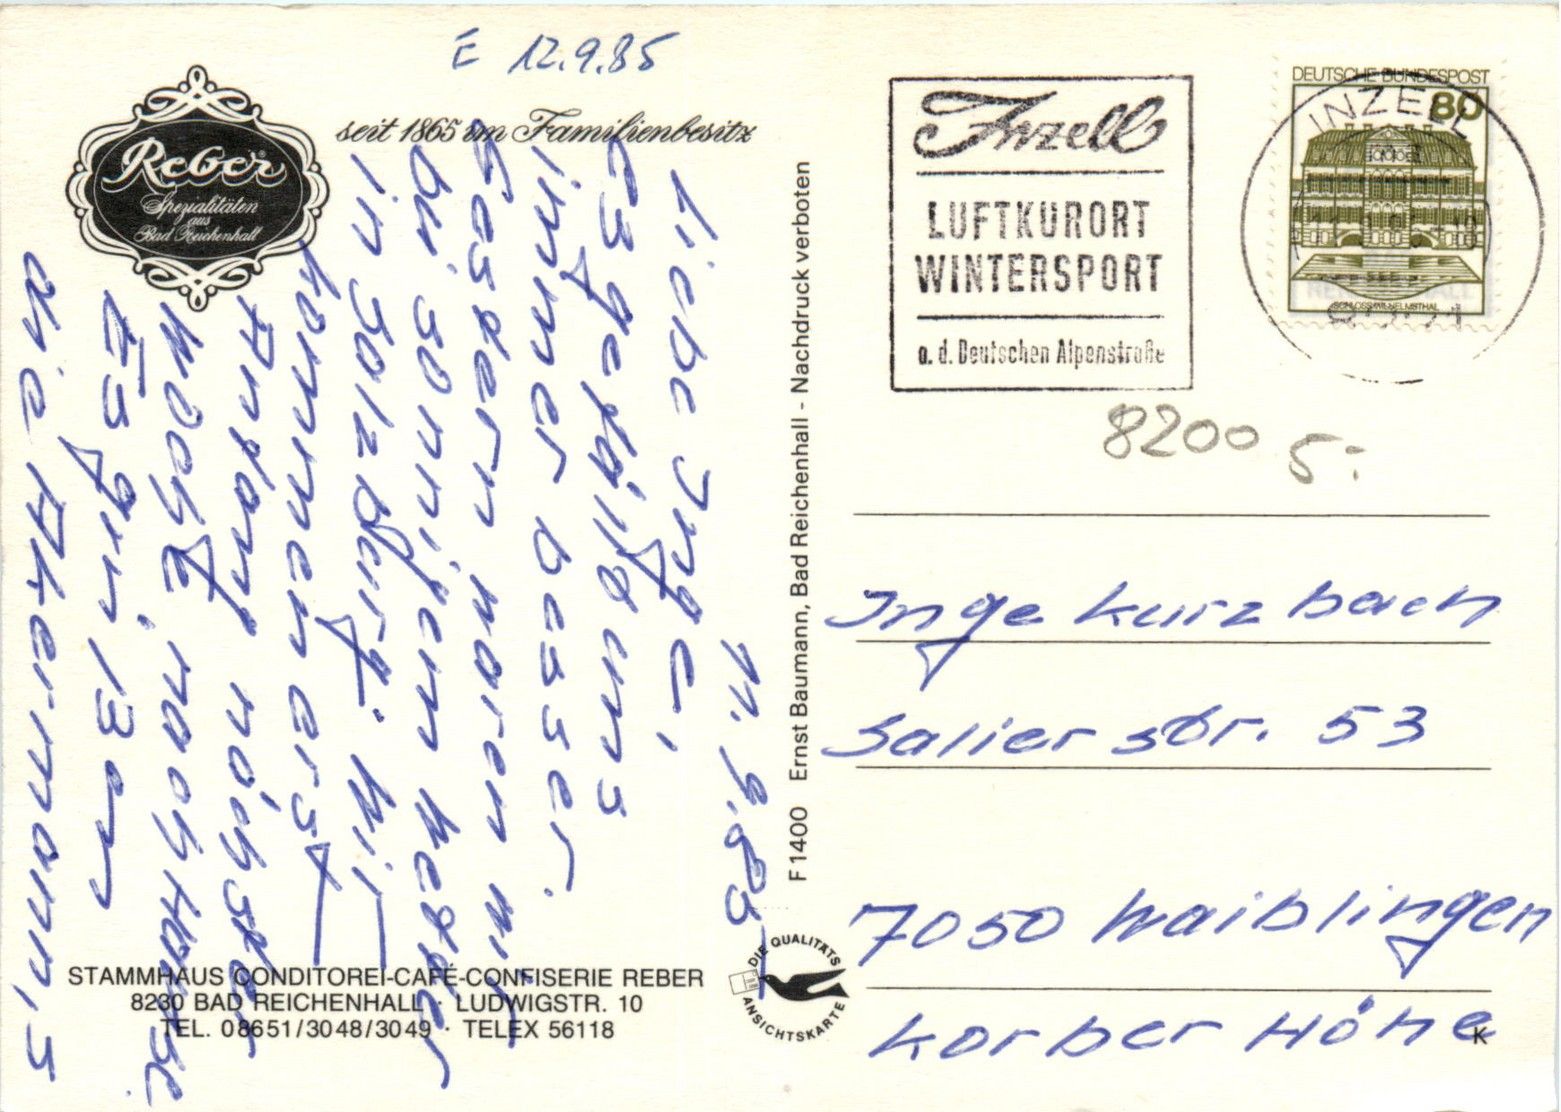 E 12.9.85
seit 1865 im Familienbesitz
Reber
Spezialitäten
aus
Bad Reichenhall
11.9.85
Liebe Inge,
Es gefällt uns
immer besser.
Gestern waren wir
bei sonnigem Wetter
in Salzburg. Wir
kommen erst
Anfang nächster
Woche nach Hause.
Es grüßen
die Akermann's
STAMMHAUS CONDITOREI-CAFÉ-CONFISERIE REBER
8230 BAD REICHENHALL · LUDWIGSTR. 10
TEL. 08651/3048/3049 · TELEX 56118
F 1400 Ernst Baumann, Bad Reichenhall - Nachdruck verboten
DIE QUALITÄTS
ANSICHTSKARTE
Inzell
LUFTKURORT
WINTERSPORT
a. d. Deutschen Alpenstraße
DEUTSCHE BUNDESPOST
80
SCHLOSS WILHELMSTHAL
INZELL
8200 5:
Inge Kurzbach
Salierstr. 53
7050 Waiblingen
Korber Höhe
K